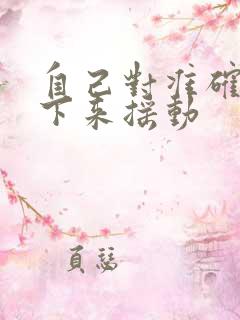 自己對准確
下來搖動
頁瑟